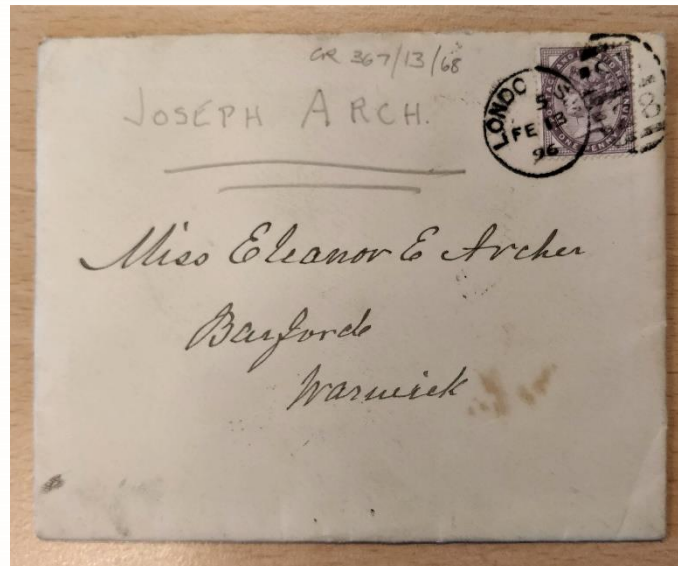 CR 367/13/68
JOSEPH ARCH.
LONDO
5
FE 13
96
Miss Eleanor E Archer
Barford
Warwick